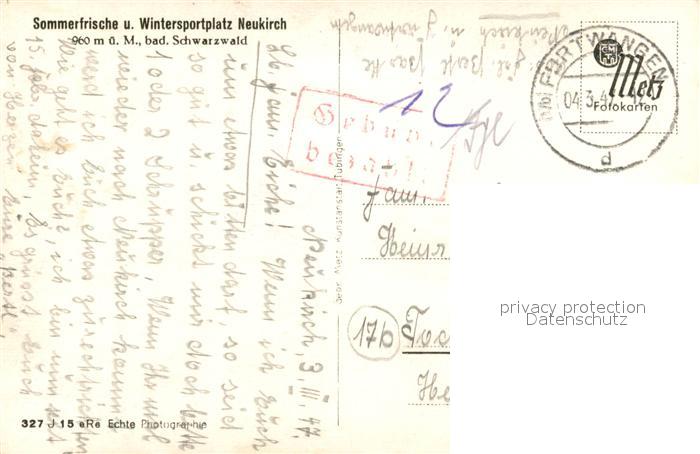 Sommerfrische u. Wintersportplatz Neukirch
960 m ü. M., bad. Schwarzwald
Neukirch, 3. III. 47.
Lb. Fam. Eiche! Wenn ich Euch
um etwas bitten darf, so seid
so gut u. schickt mir doch bitte
1 oder 2 Schlüpfer, Wenn Ihr mal
wieder nach Neukirch kommt
werd ich Euch etwas zurechtrichten
Wie geht es Euch?, ich bin nun seit
15. Febr. daheim, Es grüsst Euch
von Herzen Eure
327 J 15 eRe Echte Photographie
Gebr. Metz, Kunstanstalt, Tübingen
Gebühr
bezahlt
12
FURTWANGEN
04.3.47
d
Metz
Fotokarten
Fam.
Heinr
17b
privacy protection
Datenschutz